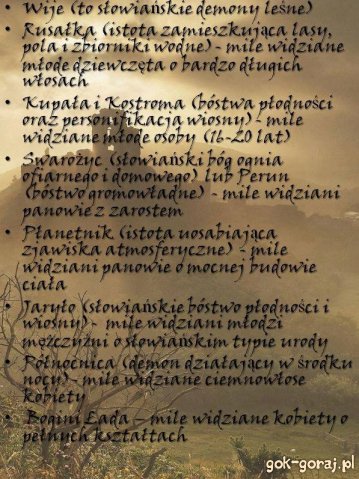 • Wije (to słowiańskie demony leśne)
• Rusałka (istota zamieszkująca lasy,
pola i zbiorniki wodne) - mile widziane
młode dziewczęta o bardzo długich
włosach
• Kupała i Kostroma (bóstwa płodności
oraz personifikacja wiosny) - mile
widziane młode osoby (16-20 lat)
• Swarożyc (słowiański bóg ognia
ofiarnego i domowego) lub Perun
(bóstwo gromowładne) - mile widziani
panowie z zarostem
• Płanetnik (istota uosabiająca
zjawiska atmosferyczne) - mile
widziani panowie o mocnej budowie
ciała
• Jaryło (słowiańskie bóstwo płodności i
wiosny) - mile widziani młodzi
mężczyźni o słowiańskim typie urody
• Północnica (demon działający w środku
nocy) - mile widziane ciemnowłose
kobiety
• Bogini Łada – mile widziane kobiety o
pełnych kształtach
gok-goraj.pl